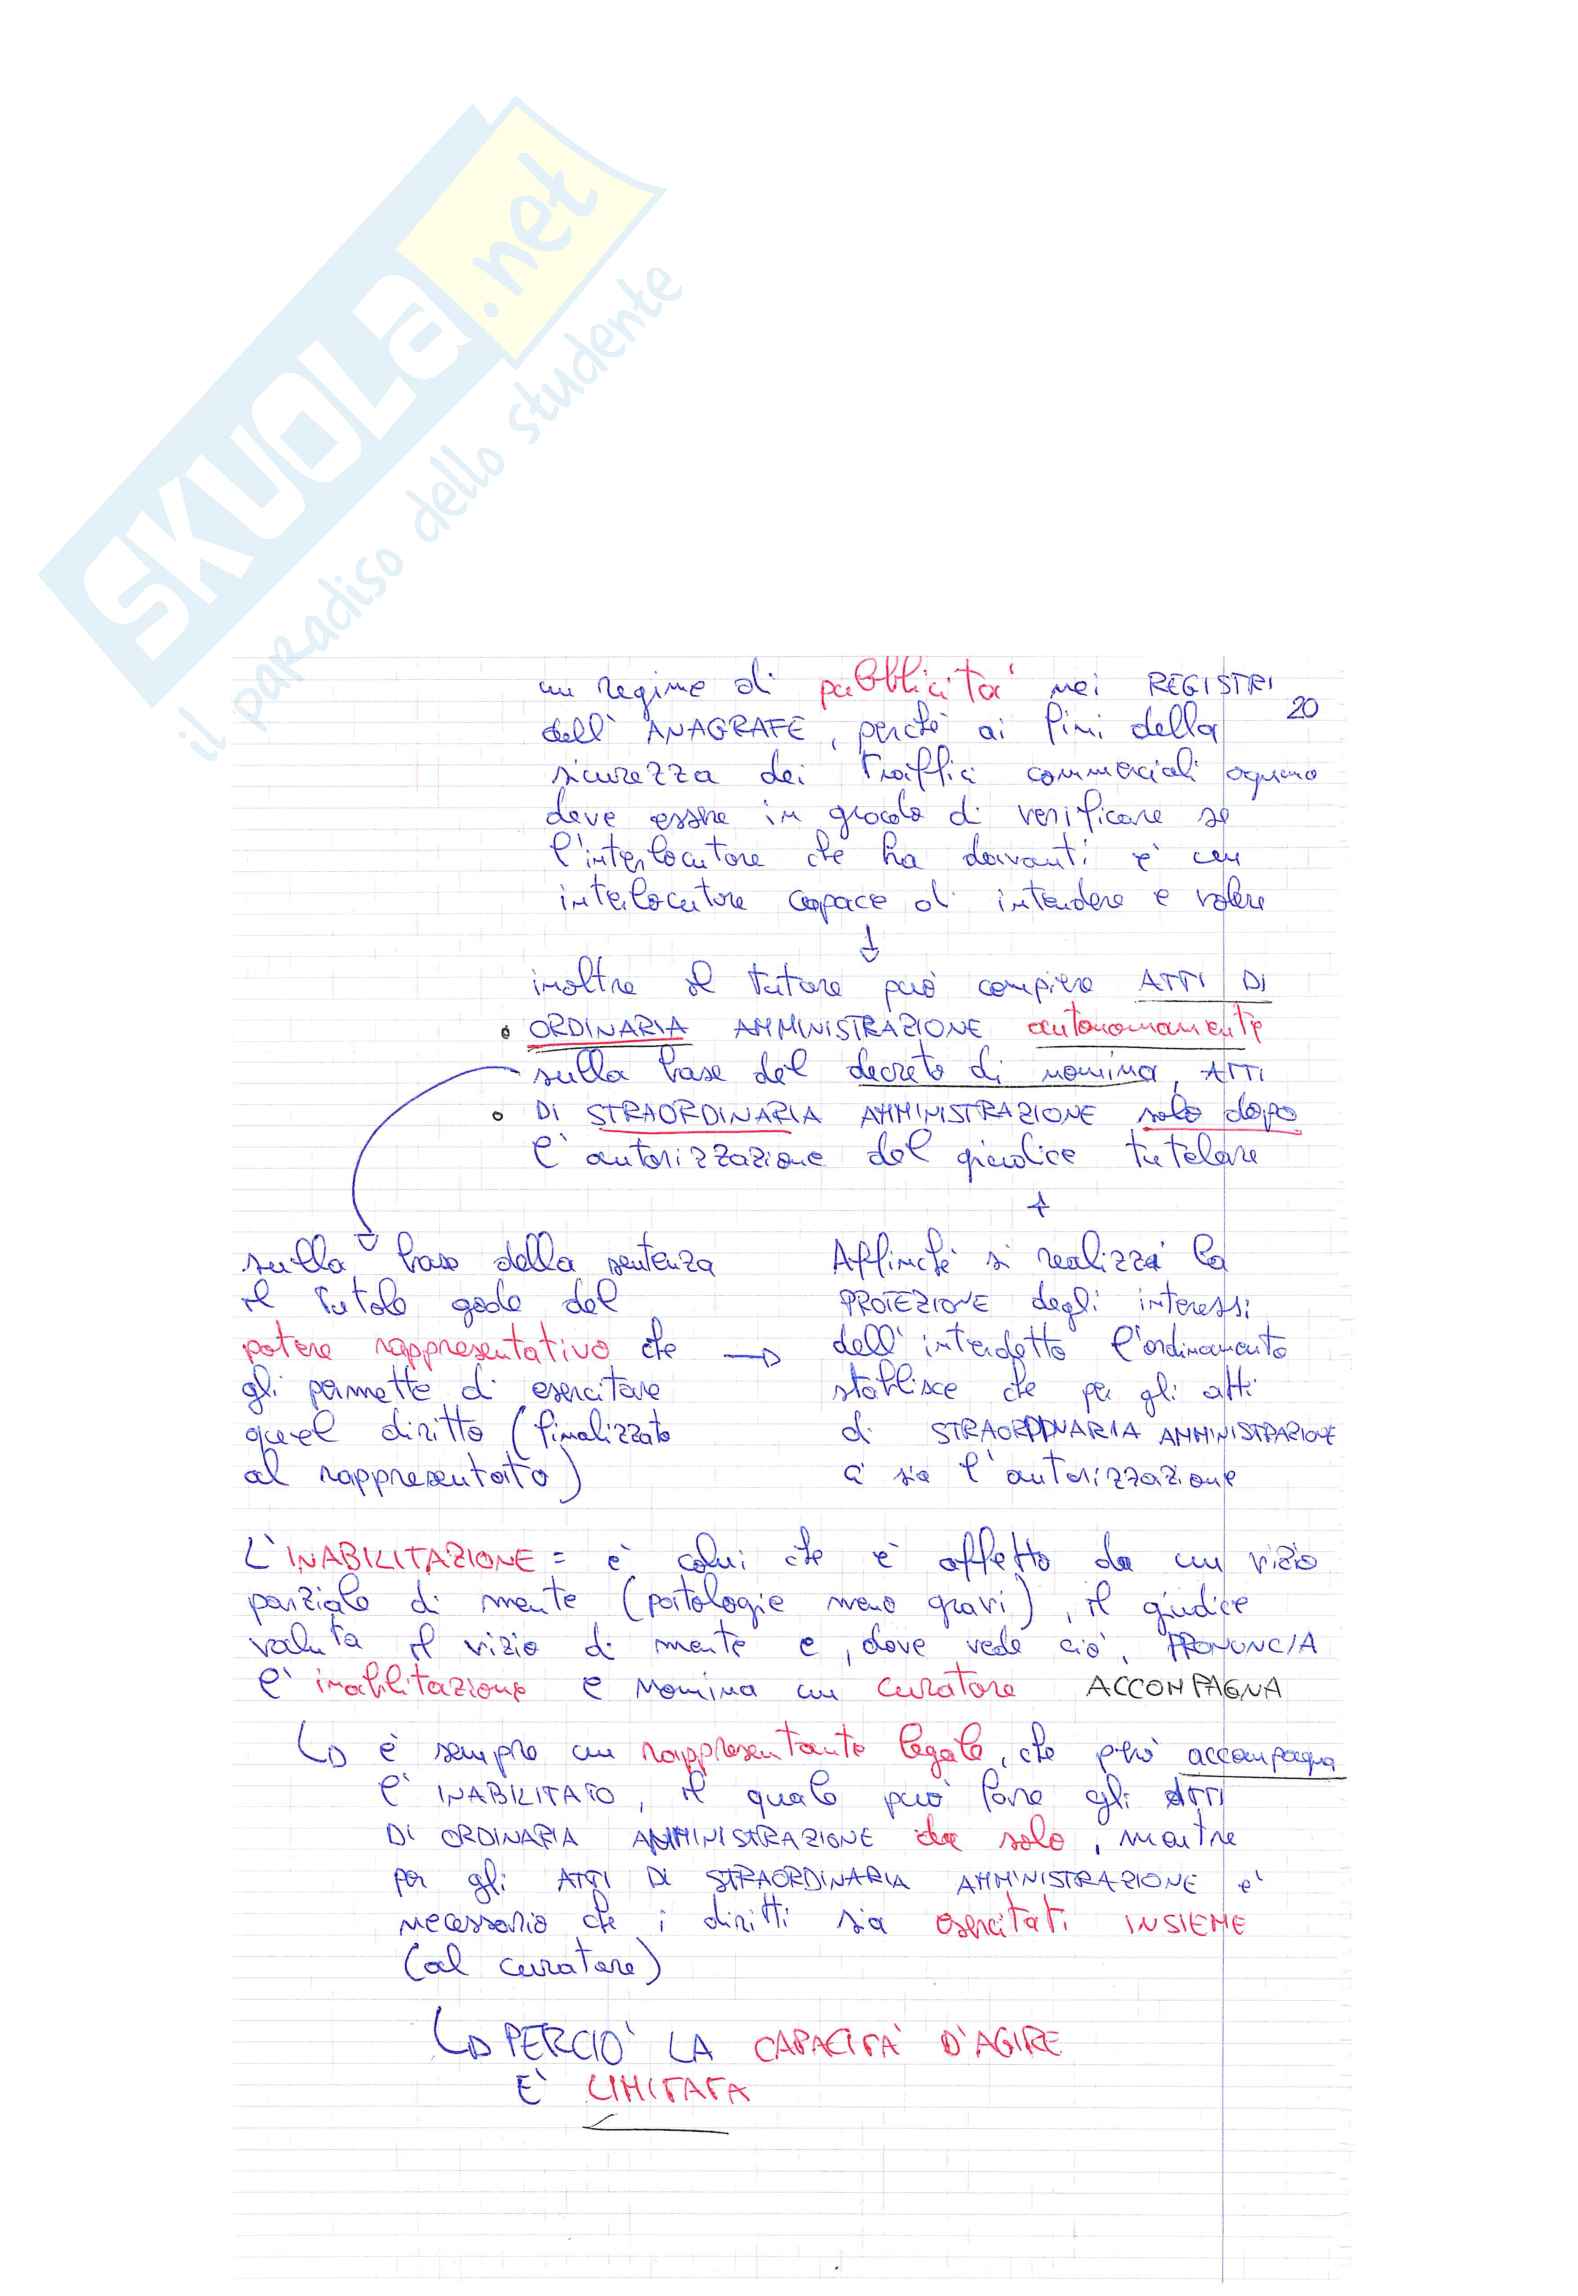 SKUOLA.net
il paradiso dello studente
un regime di pubblicità nei REGISTRI
20
dell'ANAGRAFE, perchè ai fini della
sicurezza dei traffici commerciali ognuno
deve essere in grado di verificare se
l'interlocutore che ha davanti è un
interlocutore capace di intendere e volere
inoltre il tutore può compiere ATTI DI
• ORDINARIA AMMINISTRAZIONE autonomamente
sulla base del decreto di nomina, ATTI
• DI STRAORDINARIA AMMINISTRAZIONE solo dopo
l'autorizzazione del giudice tutelare
sulla base della sentenza
il tutole gode del
potere rappresentativo che
gli permette di esercitare
quel diritto (finalizzato
al rappresentato)
Affinché si realizzi la
PROTEZIONE degli interessi
dell'interdetto l'ordinamento
stablisce che per gli atti
di STRAORDINARIA AMMINISTRAZIONE
ci sia l'autorizzazione
L'INABILITAZIONE = è colui che è affetto da un vizio
parziale di mente (patologie meno gravi), il giudice
valuta il vizio di mente e, dove vede ciò, PRONUNCIA
l'inabilitazione e nomina un curatore ACCOMPAGNA
è sempre un rappresentante legale, che però accompagna
l'INABILITATO, il quale può fare gli ATTI
DI ORDINARIA AMMINISTRAZIONE da solo, mentre
per gli ATTI DI STRAORDINARIA AMMINISTRAZIONE è
necessario che i diritti sia esercitati INSIEME
(al curatore)
PERCIO' LA CAPACITÀ D'AGIRE
E' LIMITATA